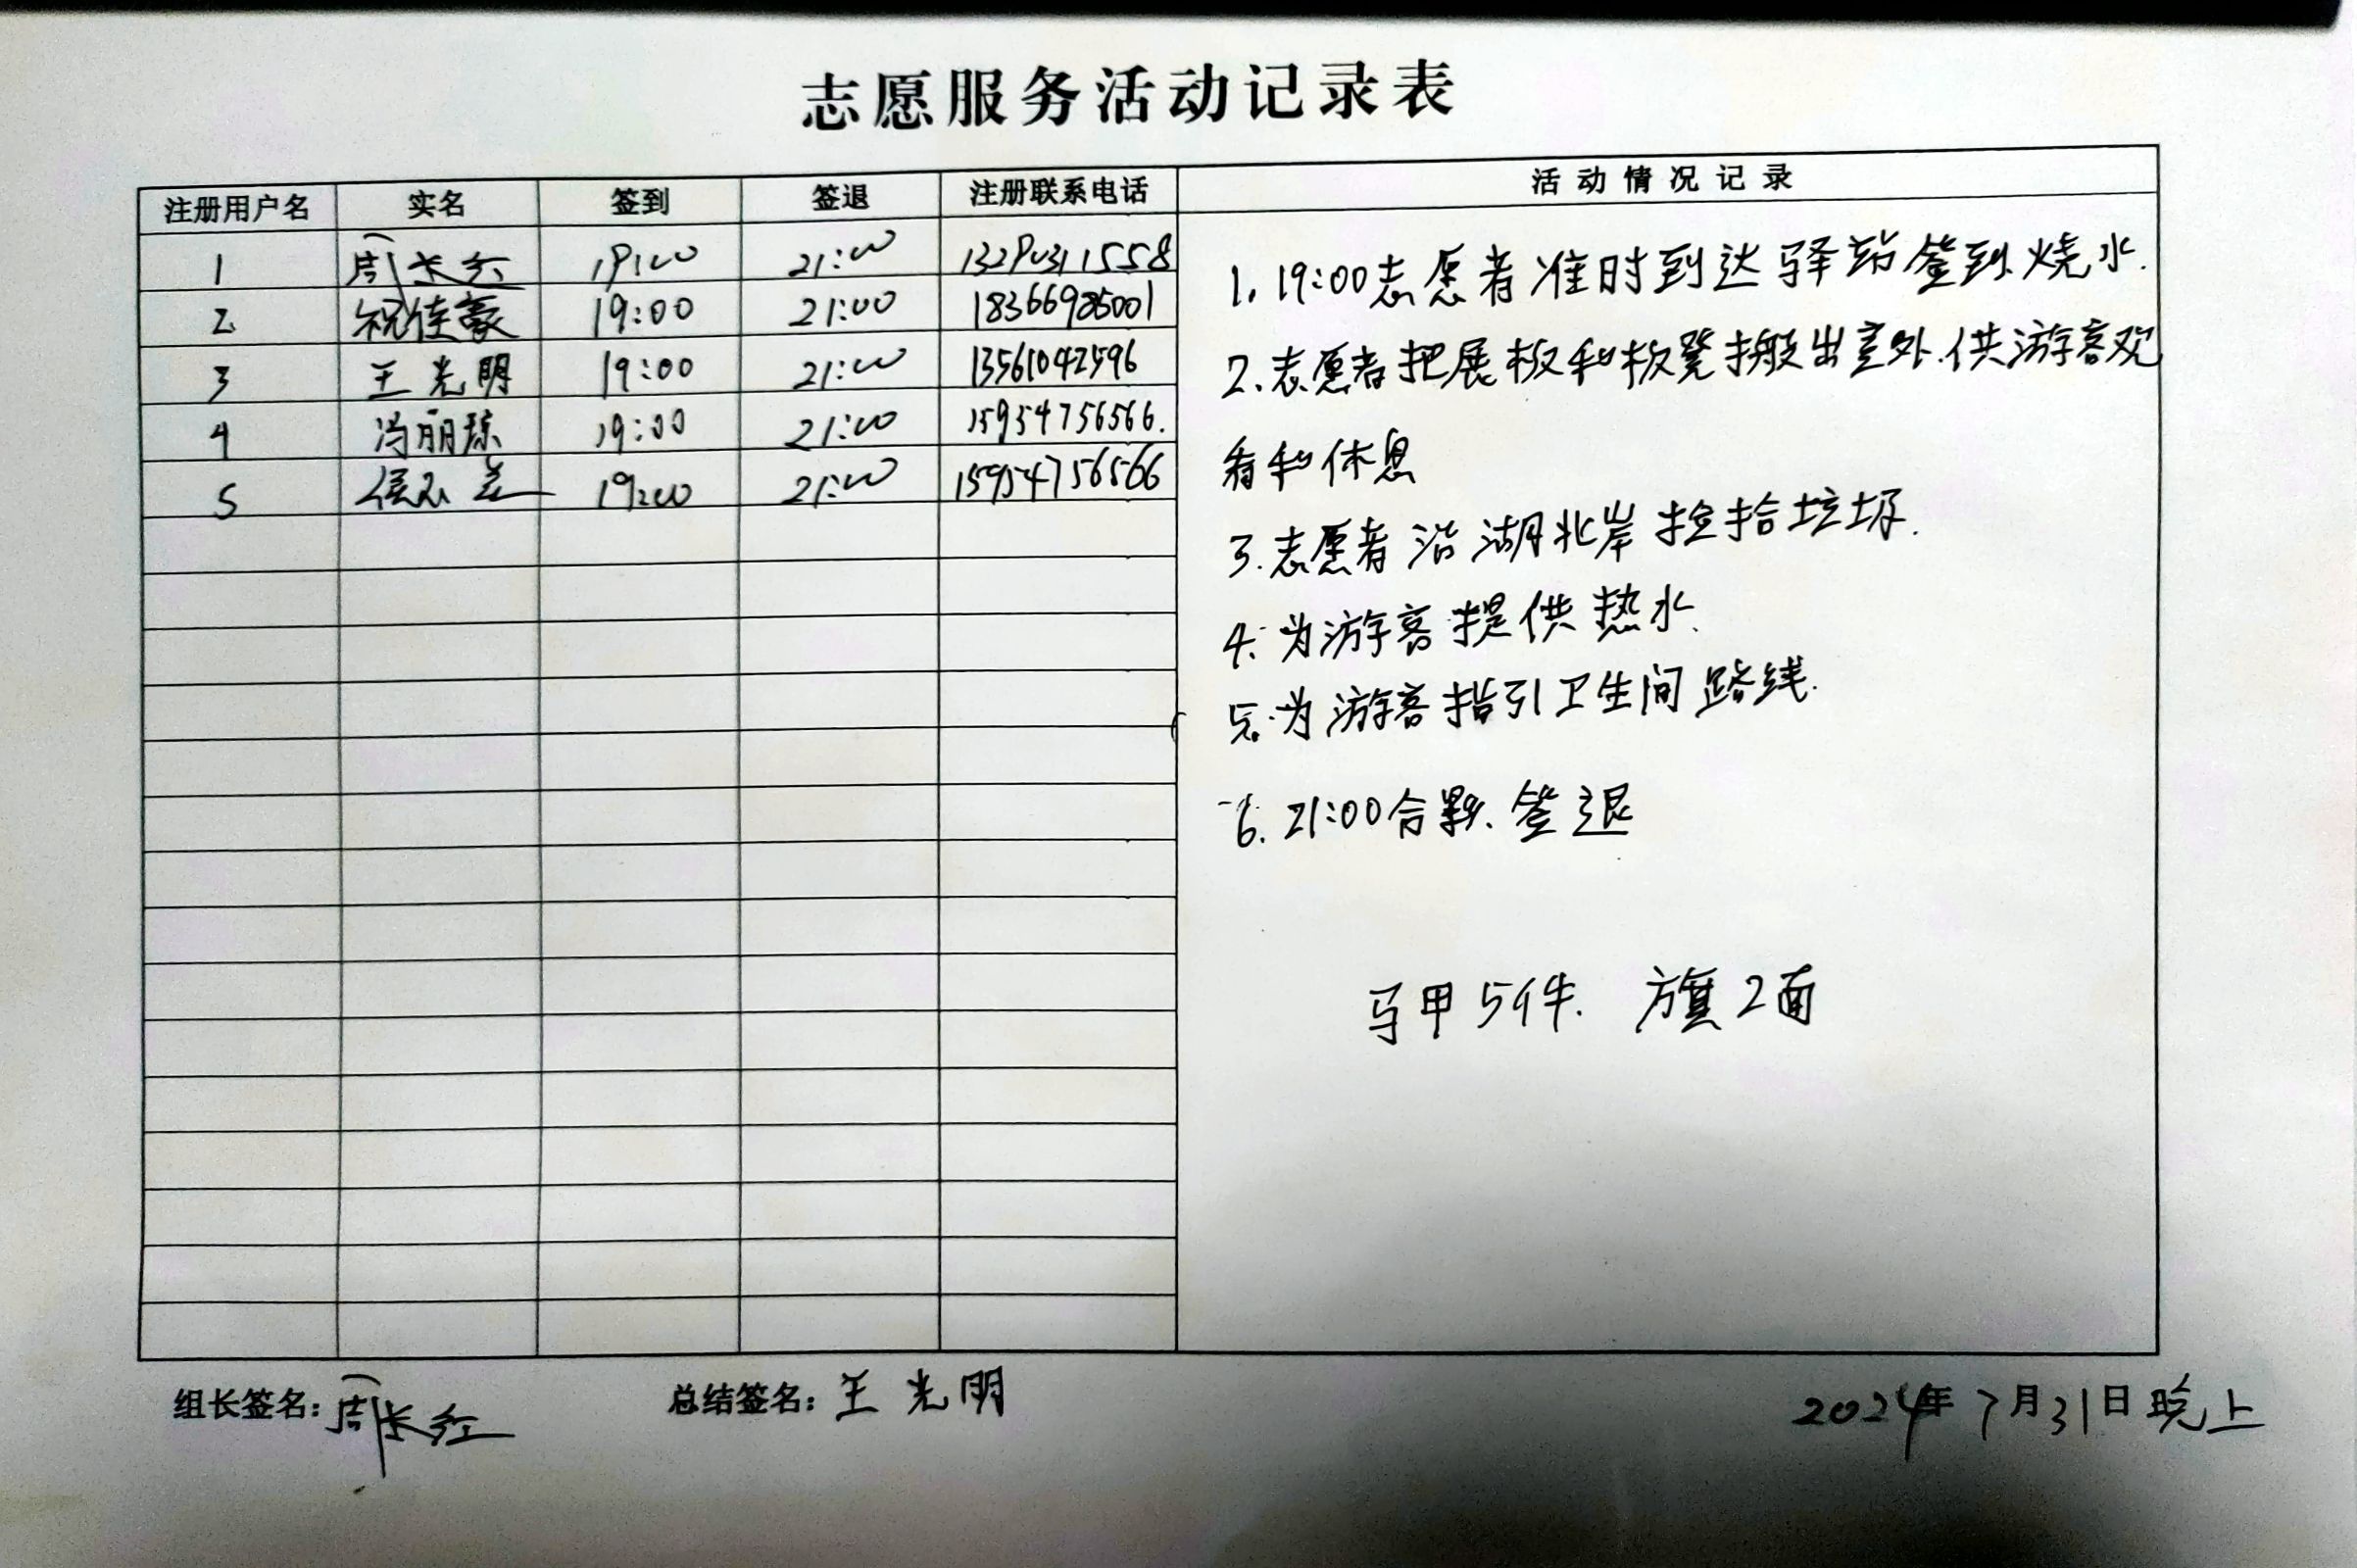 志愿服务活动记录表
注册用户名 实名 签到 签退 注册联系电话 活动情况记录
1 周长红 19:00 21:00 13290311558
2 祝佳豪 19:00 21:00 18366985001
3 王光明 19:00 21:00 13561042596
4 冯丽琼 19:00 21:00 15954756566.
5 19:00 21:00 15954756566
1. 19:00志愿者准时到达驿站签到.烧水.
2.志愿者把展板和板凳搬出室外.供游客观
看和休息
3.志愿者沿湖北岸捡拾垃圾.
4.为游客提供热水.
5.为游客指引卫生间路线.
6. 21:00合影.签退
马甲5件. 旗2面
组长签名:周长红 总结签名:王光明 2024年7月31日晚上